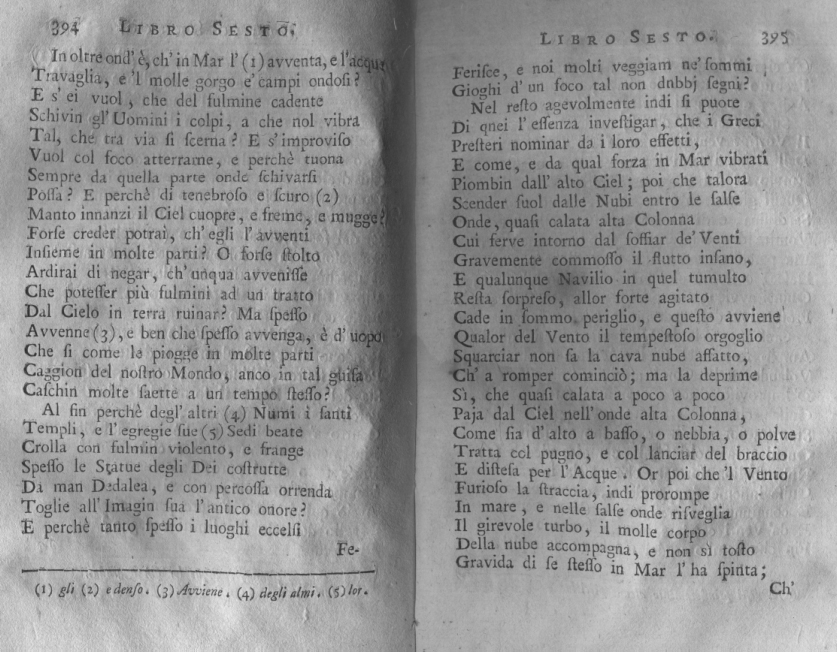 394 LIBRO SESTO.
In oltre ond' è, ch' in Mar l' (1) avventa, e l'acque
Travaglia, e 'l molle gorgo e' campi ondosi?
E s' ei vuol, che del fulmine cadente
Schivin gl' Uomini i colpi, a che nol vibra
Tal, che tra via si scerna? E s'improviso
Vuol col foco atterrarne, e perchè tuona
Sempre da quella parte onde schivarsi
Possa? E perchè di tenebroso e scuro (2)
Manto innanzi il Ciel cuopre, e freme, e mugge?
Forse creder potrai, ch' egli l' avventi
Insieme in molte parti? O forse stolto
Ardirai di negar, ch' unqua avvenisse
Che potesser più fulmini ad un tratto
Dal Cielo in terra ruinar? Ma spesso
Avvenne (3), e ben che spesso avvenga, è d' uopo
Che si come le piogge in molte parti
Caggion del nostro Mondo, anco in tal guisa
Caschin molte saette a un tempo stesso?
Al fin perchè degl' altri (4) Numi i santi
Templi, e l' egregie sue (5) Sedi beate
Crolla con fulmin violento, e frange
Spesso le Statue degli Dei costrutte
Da man Dedalea, e con percossa orrenda
Toglie all' Imagin sua l' antico onore?
E perchè tanto spesso i luoghi eccelsi
Fe-
(1) gli (2) e denso. (3) Avviene. (4) degli almi. (5) lor.
LIBRO SESTO. 395
Ferisce, e noi molti veggiam ne' sommi
Gioghi d' un foco tal non dnbbj segni?
Nel resto agevolmente indi si puote
Di qnei l' essenza investigar, che i Greci
Presteri nominar da i loro effetti,
E come, e da qual forza in Mar vibrati
Piombin dall' alto Ciel; poi che talora
Scender suol dalle Nubi entro le salse
Onde, quasi calata alta Colonna
Cui ferve intorno dal soffiar de' Venti
Gravemente commosso il flutto insano,
E qualunque Navilio in quel tumulto
Resta sorpreso, allor forte agitato
Cade in sommo periglio, e questo avviene
Qualor del Vento il tempestoso orgoglio
Squarciar non sa la cava nube affatto,
Ch' a romper cominciò; ma la deprime
Sì, che quasi calata a poco a poco
Paja dal Ciel nell' onde alta Colonna,
Come sia d' alto a basso, o nebbia, o polve
Tratta col pugno, e col lanciar del braccio
E distesa per l' Acque. Or poi che 'l Vento
Furioso la straccia, indi prorompe
In mare, e nelle salse onde risveglia
Il girevole turbo, il molle corpo
Della nube accompagna, e non sì tosto
Gravida di se stesso in Mar l' ha spinta;
Ch'